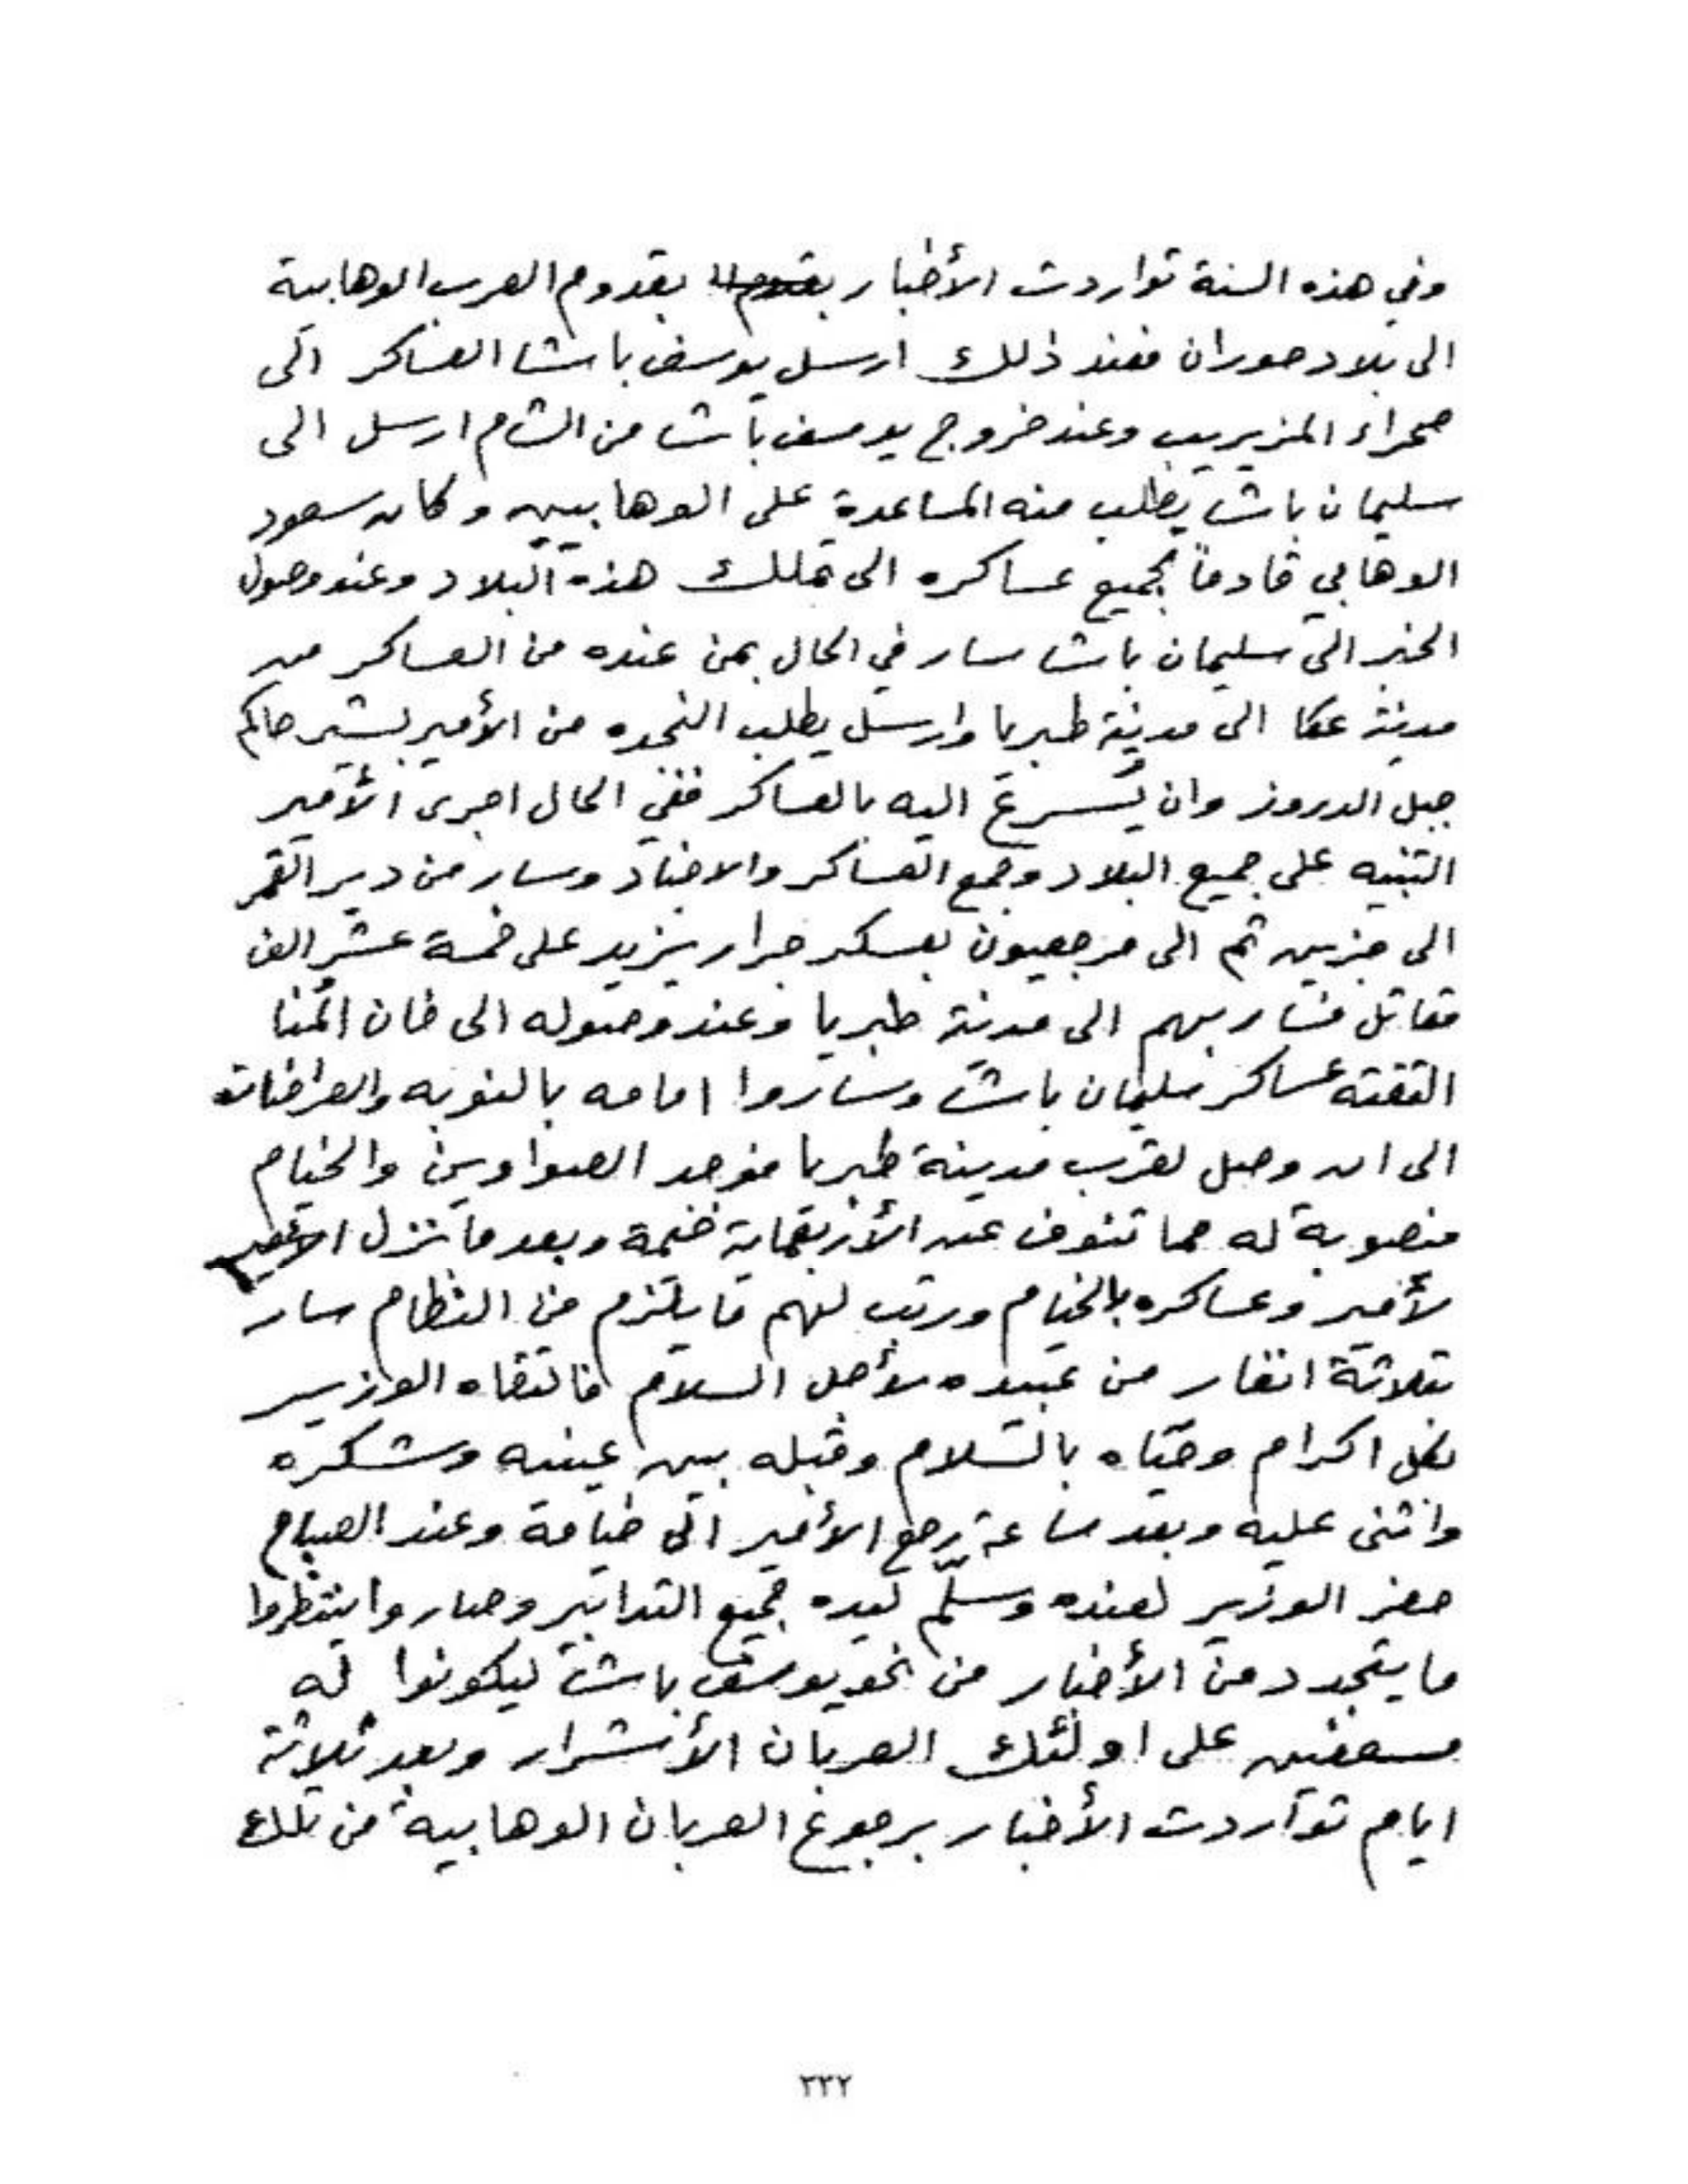 وفي هذه السنة تواردت الأخبار بقدوم العرب الوهابية
الى بلاد حوران فعند ذلك ارسل يوسف باشا العساكر الى
صحراء المزيريب وعند خروج يوسف باشا من الشام ارسل الى
سليمان باشا يطلب منه المساعدة على الوهابيين وكان سعود
الوهابي قادماً بجميع عساكره الى تملك هذه البلاد وعند وصول
الخبر الى سليمان باشا سار في الحال بمن عنده من العساكر من
مدينة عكا الى مدينة طبريا وارسل يطلب النجده من الأمير بشير حاكم
جبل الدروز وان يُسرع اليه بالعساكر ففي الحال اجرى الأمير
التنبيه على جميع البلاد وجمع العساكر والاجناد وسار من دير القمر
الى جزين ثم الى مرجعيون بعسكر جرار يزيد على خمسة عشر الف
مقاتل فسار بهم الى مدينة طبريا وعند وصوله الى خان المُنيا
التقته عساكر سليمان باشا وساروا امامه بالنوبه والعراضات
الى ان وصل لقرب مدينة طبريا فوجد الصواوين والخيام
منصوبة له مما تنوف عن الأربعماية خيمة وبعد ما نزل
لأمير وعساكره بالخيام ورتب لهم ما يلتزم من النظام سار
بثلاثة انفار من عبيده لأجل السلام فالتقاه الوزير
بكل اكرام وحيّاه بالسلام وقبله بين عينيه وشكره
واثنى عليه وبعد ساعة رجع الأمير الى خيامة وعند الصباح
حضر الوزير لعنده وسلّم ليده جميع التدابير وصاروا ينتظروا
ما يتجدد من الأخبار من نحو يوسف باشا ليكونوا له
مسعفين على اولئك العربان الأشرار وبعد ثلاثة
ايام تواردت الأخبار برجوع العربان الوهابية من تلك
٣٣٢